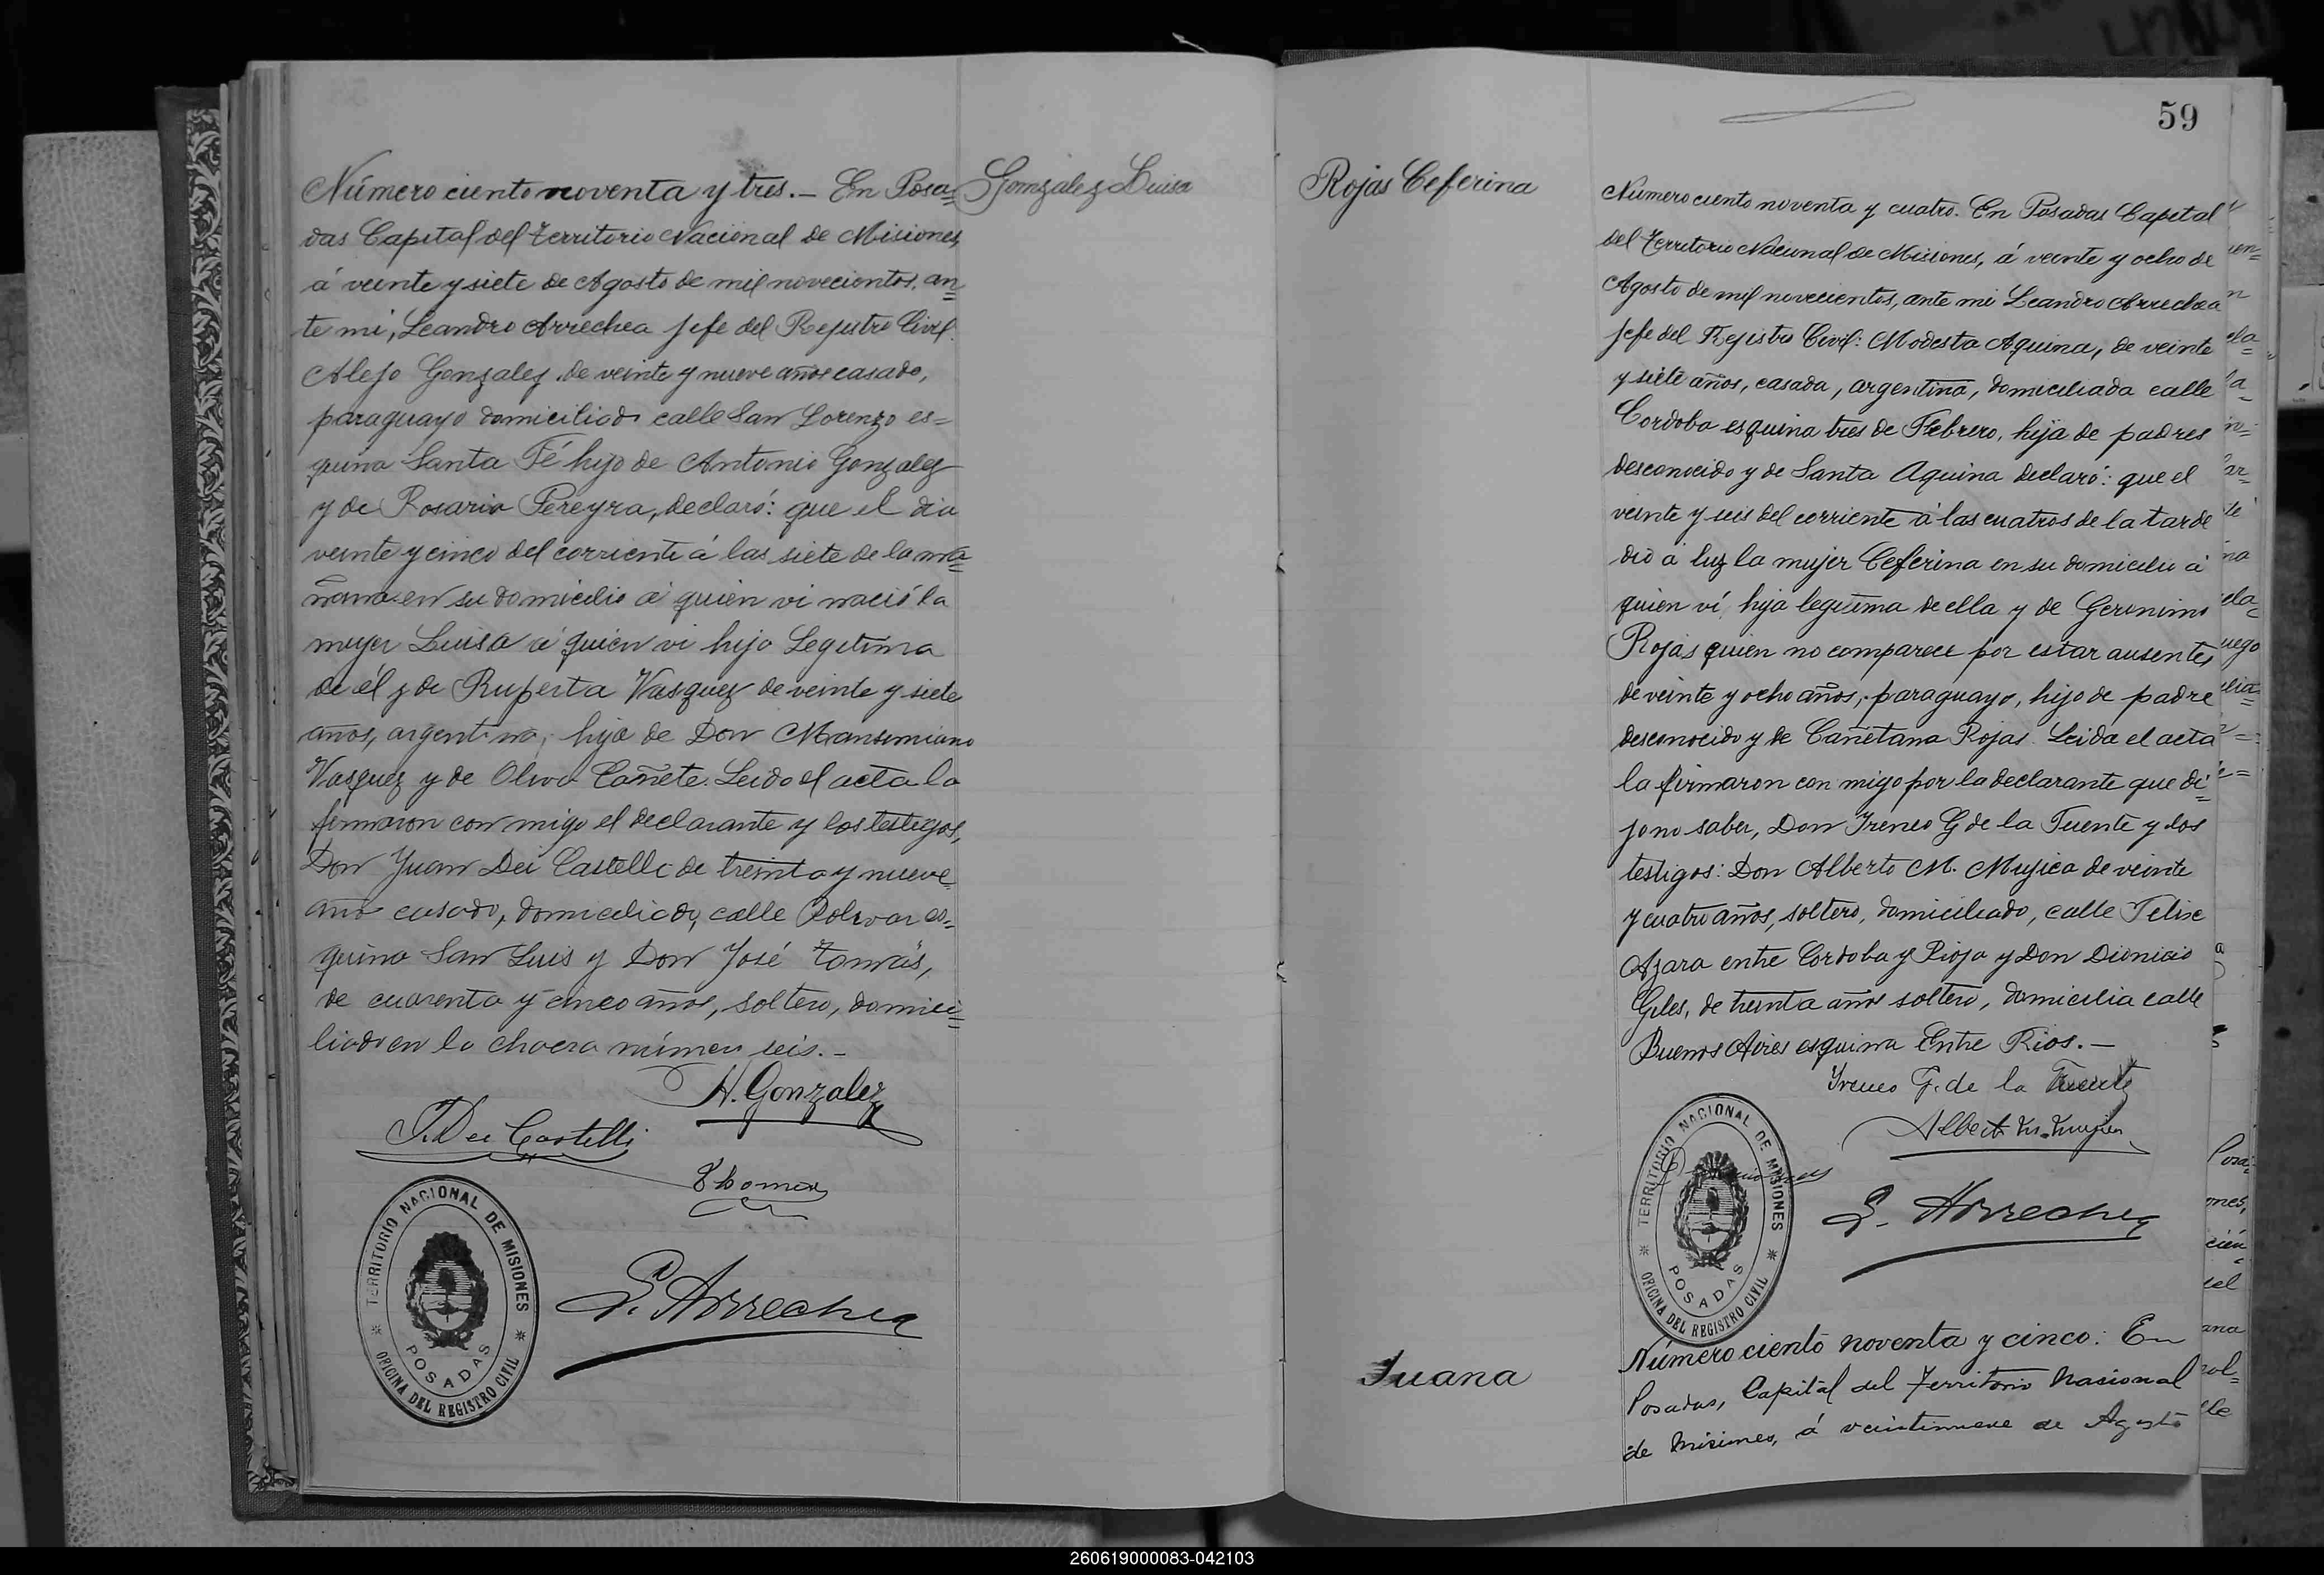 Número ciento noventa y tres.— En Posa=
das Capital del territorio Nacional de Misiones,
á veinte y siete de Agosto de mil novecientos, an=
te mi, Leandro Arrechea Jefe del Rejistro Civil.
Alejo Gonzalez, de veinte y nueve años casado,
paraguayo domiciliado calle San Lorenzo es=
quina Santa Fé hijo de Antonio Gonzalez
y de Rosario Pereyra, declaró: que el dia
veinte y cinco del corriente á las siete de la ma=
ñana en su domicilio á quien vi nació la
mujer Luisa á quien vi hijo Legitima
de él y de Ruperta Vasquez de veinte y siete
años, argentina, hija de Don Mansimiano
Vasquez y de Oliva Cañete. Leido el acta la
firmaron con migo el declarante y los testigos,
Don Juan Dei Castelli de treinta y nueve
año casado, domiciliado, calle Bolivar es=
quina San Luis y Don José Tomás,
de cuarenta y cinco años, soltero, domici=
liado en la chacra número seis.—
A. Gonzalez
J. Dei Castelli
Thomas
L. Arrechea
TERRITORIO NACIONAL DE MISIONES
POSADAS
* OFICINA DEL REGISTRO CIVIL *
Gonzalez Luisa
Rojas Ceferina
59
Número ciento noventa y cuatro. En Posadas Capital
del territorio Nacional de Misiones, á veinte y ocho de
Agosto de mil novecientos, ante mi Leandro Arrechea
Jefe del Rejistro Civil: Modesta Aquina, de veinte
y siete años, casada, argentina, domiciliada calle
Cordoba esquina tres de Febrero, hija de padres
desconocido y de Santa Aquina declaró: que el
veinte y seis del corriente á las cuatros de la tarde
dió á luz la mujer Ceferina en su domicilio á
quien ví, hija legitima de ella y de Geronimo
Rojas quien no comparece por estar ausentes,
de veinte y ocho años, paraguayo, hijo de padre
desconocido y de Cañetana Rojas. Leida el acta
la firmaron con migo por la declarante que di=
jo no saber, Don Ireneo G de la Fuente y los
testigos: Don Alberto M. Mujica de veinte
y cuatro años, soltero, domiciliado, calle Felix
Azara entre Cordoba y Rioja y Don Dionicio
Giles, de treinta años soltero, domicilia calle
Buenos Aires esquina Entre Rios.—
Ireneo G. de la Fuente
Albert M. Mujica
L. Arrechea
TERRITORIO NACIONAL DE MISIONES
POSADAS
* OFICINA DEL REGISTRO CIVIL *
Juana
Número ciento noventa y cinco: En
Posadas, Capital del Territorio Nacional
de Misiones, á veintinueve de Agosto
260619000083-042103